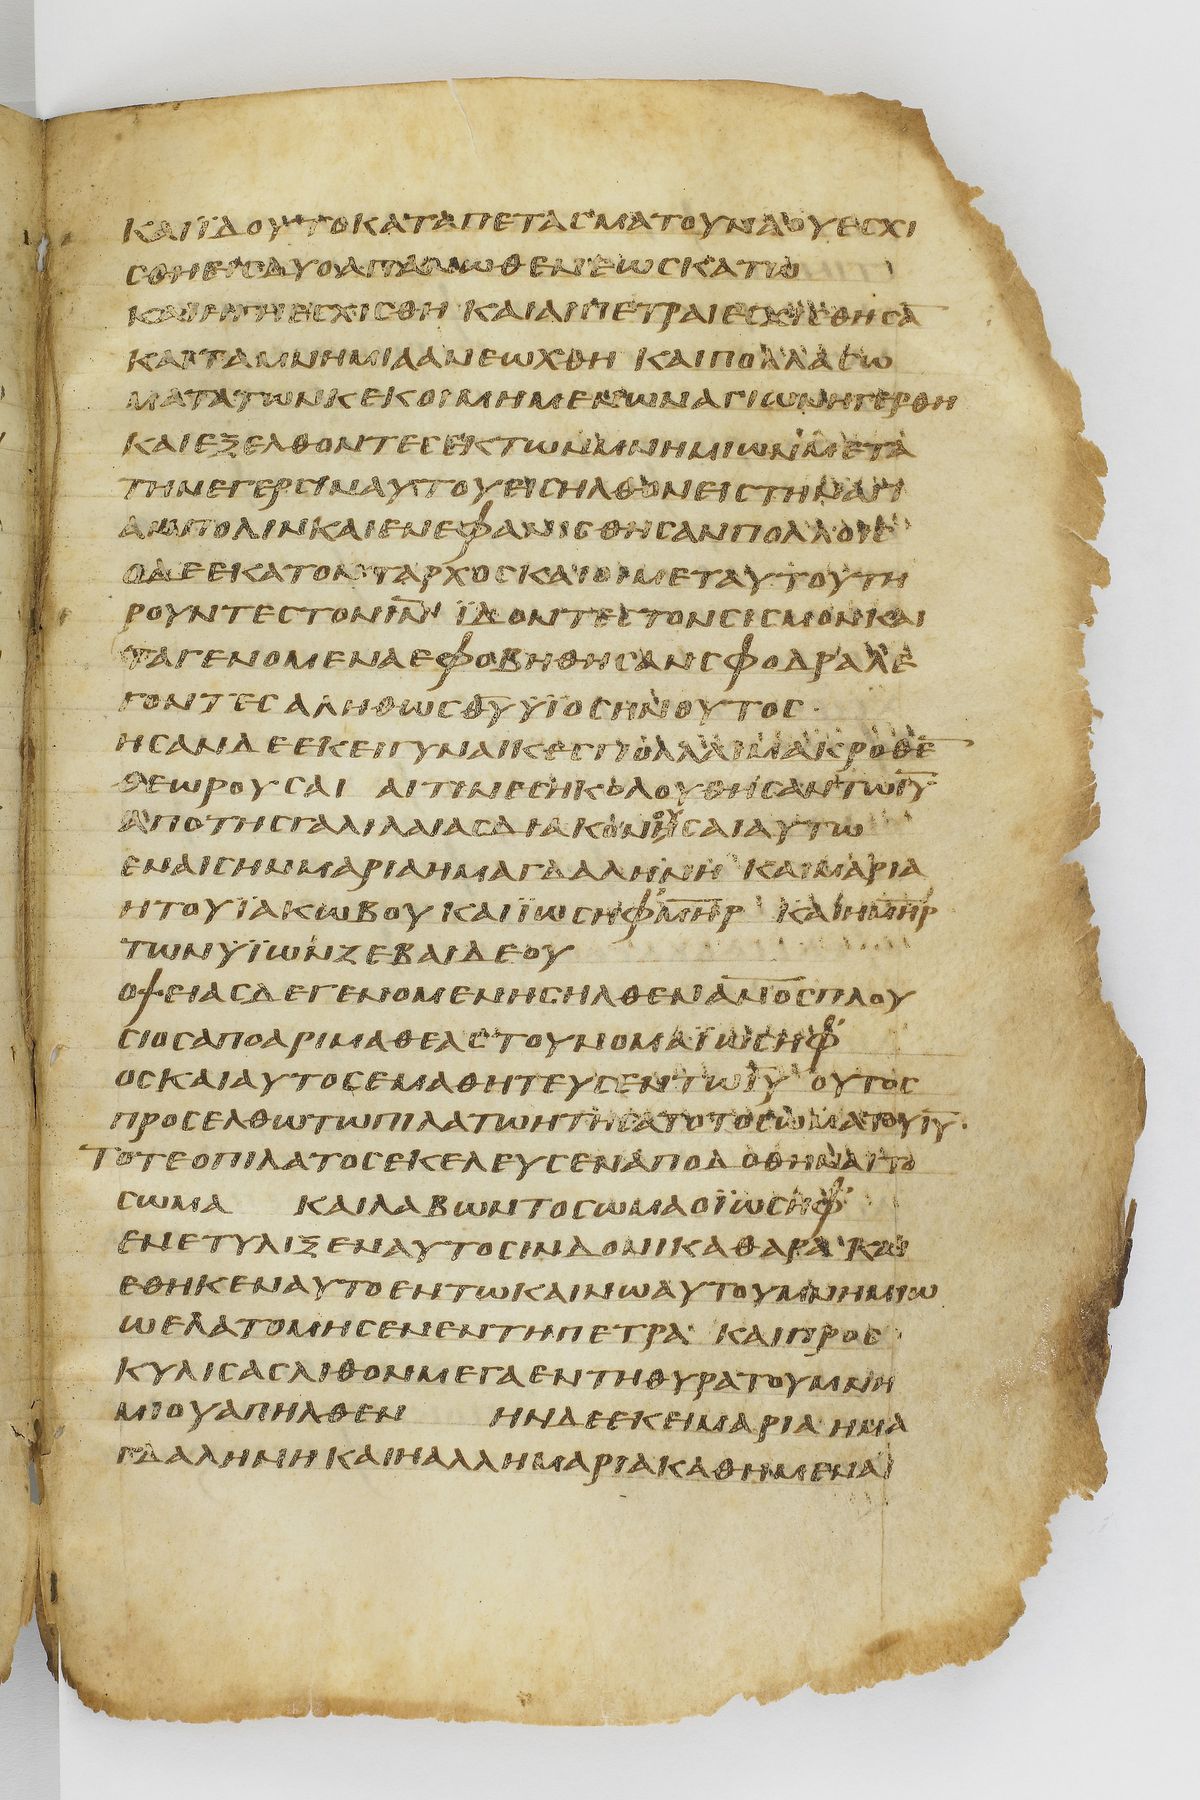 ΚΑΙ ΪΔΟΥ ΤΟ ΚΑΤΑΠΕΤΑCΜΑ ΤΟΥ ΝΑΟΥ ΕCΧΙ
CΘΗ ΕΙC ΔΥΟ ΑΠΑΝΩΘΕΝ ΕΩC ΚΑΤΩ
ΚΑΙ Η ΓΗ ΕCΧΙCΘΗ ΚΑΙ ΑΙ ΠΕΤΡΑΙ ΕCΧΙCΘΗCΑ̅
ΚΑΙ ΤΑ ΜΝΗΜΙΑ ΑΝΕΩΧΘΗ ΚΑΙ ΠΟΛΛΑ CΩ
ΜΑΤΑ ΤΩΝ ΚΕΚΟΙΜΗΜΕΝΩΝ ΑΓΙΩΝ ΗΓΕΡΘΗ
ΚΑΙ ΕΞΕΛΘΟΝΤΕC ΕΚ ΤΩΝ ΜΝΗΜΙΩΝ ΜΕΤΑ
ΤΗΝ ΕΓΕΡCΙΝ ΑΥΤΟΥ ΕΙCΗΛΘΟΝ ΕΙC ΤΗΝ ΑΓΙ
ΑΝ ΠΟΛΙΝ ΚΑΙ ΕΝΕΦΑΝΙCΘΗCΑΝ ΠΟΛΛΟΙC
Ο ΔΕ ΕΚΑΤΟΝΤΑΡΧΟC ΚΑΙ ΟΙ ΜΕΤ ΑΥΤΟΥ ΤΗ
ΡΟΥΝΤΕC ΤΟΝ Ι̅Ν̅ ΪΔΟΝΤΕC ΤΟΝ CΙCΜΟΝ ΚΑΙ
ΤΑ ΓΕΝΟΜΕΝΑ ΕΦΟΒΗΘΗCΑΝ CΦΟΔΡΑ ΛΕ
ΓΟΝΤΕC ΑΛΗΘΩC Θ̅Υ̅ ΥΪΟC ΗΝ ΟΥΤΟC·
ΗCΑΝ ΔΕ ΕΚΕΙ ΓΥΝΑΙΚΕC ΠΟΛΛΑΙ ΜΑΚΡΟΘΕ̅
ΘΕΩΡΟΥCΑΙ ΑΙΤΙΝΕC ΗΚΟΛΟΥΘΗCΑΝ ΤΩ Ι̅Υ̅
ΑΠΟ ΤΗC ΓΑΛΙΛΑΙΑC ΔΙΑΚΟΝΟΥCΑΙ ΑΥΤΩ
ΕΝ ΑΙC ΗΝ ΜΑΡΙΑ Η ΜΑΓΔΑΛΗΝΗ ΚΑΙ ΜΑΡΙΑ
Η ΤΟΥ ΪΑΚΩΒΟΥ ΚΑΙ ΪΩCΗΦ Μ̅Η̅Ρ̅ ΚΑΙ Η Μ̅Η̅Ρ̅
ΤΩΝ ΥΪΩΝ ΖΕΒΑΙΔΕΟΥ
ΟΨΕΙΑC ΔΕ ΓΕΝΟΜΕΝΗC ΗΛΘΕΝ Α̅Ν̅Ο̅C̅ ΠΛΟΥ
CΙΟC ΑΠΟ ΑΡΙΜΑΘΕΑC ΤΟΥΝΟΜΑ ΪΩCΗΦ
ΟC ΚΑΙ ΑΥΤΟC ΕΜΑΘΗΤΕΥCΕΝ ΤΩ Ι̅Υ̅ ΟΥΤΟC
ΠΡΟCΕΛΘΩ ΤΩ ΠΙΛΑΤΩ ΗΤΗCΑΤΟ ΤΟ CΩΜΑ ΤΟΥ Ι̅Υ̅·
ΤΟΤΕ Ο ΠΙΛΑΤΟC ΕΚΕΛΕΥCΕΝ ΑΠΟΔΟΘΗΝΑΙ ΤΟ
CΩΜΑ ΚΑΙ ΛΑΒΩΝ ΤΟ CΩΜΑ Ο ΪΩCΗΦ
ΕΝΕΤΥΛΙΞΕΝ ΑΥΤΟ CΙΝΔΟΝΙ ΚΑΘΑΡΑ ΚΑΙ
ΕΘΗΚΕΝ ΑΥΤΟ ΕΝ ΤΩ ΚΑΙΝΩ ΑΥΤΟΥ ΜΝΗΜΙΩ
Ω ΕΛΑΤΟΜΗCΕΝ ΕΝ ΤΗ ΠΕΤΡΑ ΚΑΙ ΠΡΟC
ΚΥΛΙCΑC ΛΙΘΟΝ ΜΕΓΑ ΕΝ ΤΗ ΘΥΡΑ ΤΟΥ ΜΝΗ
ΜΙΟΥ ΑΠΗΛΘΕΝ ΗΝ ΔΕ ΕΚΕΙ ΜΑΡΙΑ Η ΜΑ
ΓΔΑΛΗΝΗ ΚΑΙ Η ΑΛΛΗ ΜΑΡΙΑ ΚΑΘΗΜΕΝΑΙ